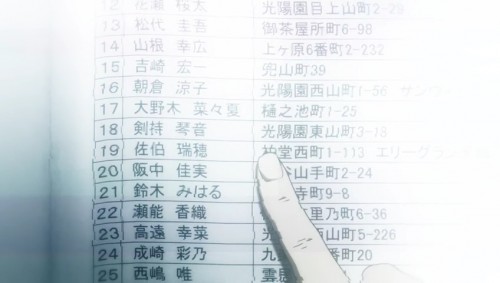 12 花瀬 桜太 光陽園目上山町2-28
13 松代 圭吾 御茶屋所町6-98
14 山根 幸広 上ヶ原6番町2-232
15 吉崎 宏一 兜山町39
16 朝倉 涼子 光陽園西山町1-56
17 大野木 菜々夏 樋之池町1-25
18 剣持 琴音 光陽園東山町3-18
19 佐伯 瑞穂 柏堂西町1-113 エリーグラン
20 阪中 佳実 谷山手町2-24
21 鈴木 みはる 寺町9-8
22 瀬能 香織 里乃町6-36
23 高遠 幸菜 光 西山町5-226
24 成崎 彩乃 九 番町20
25 西嶋 唯